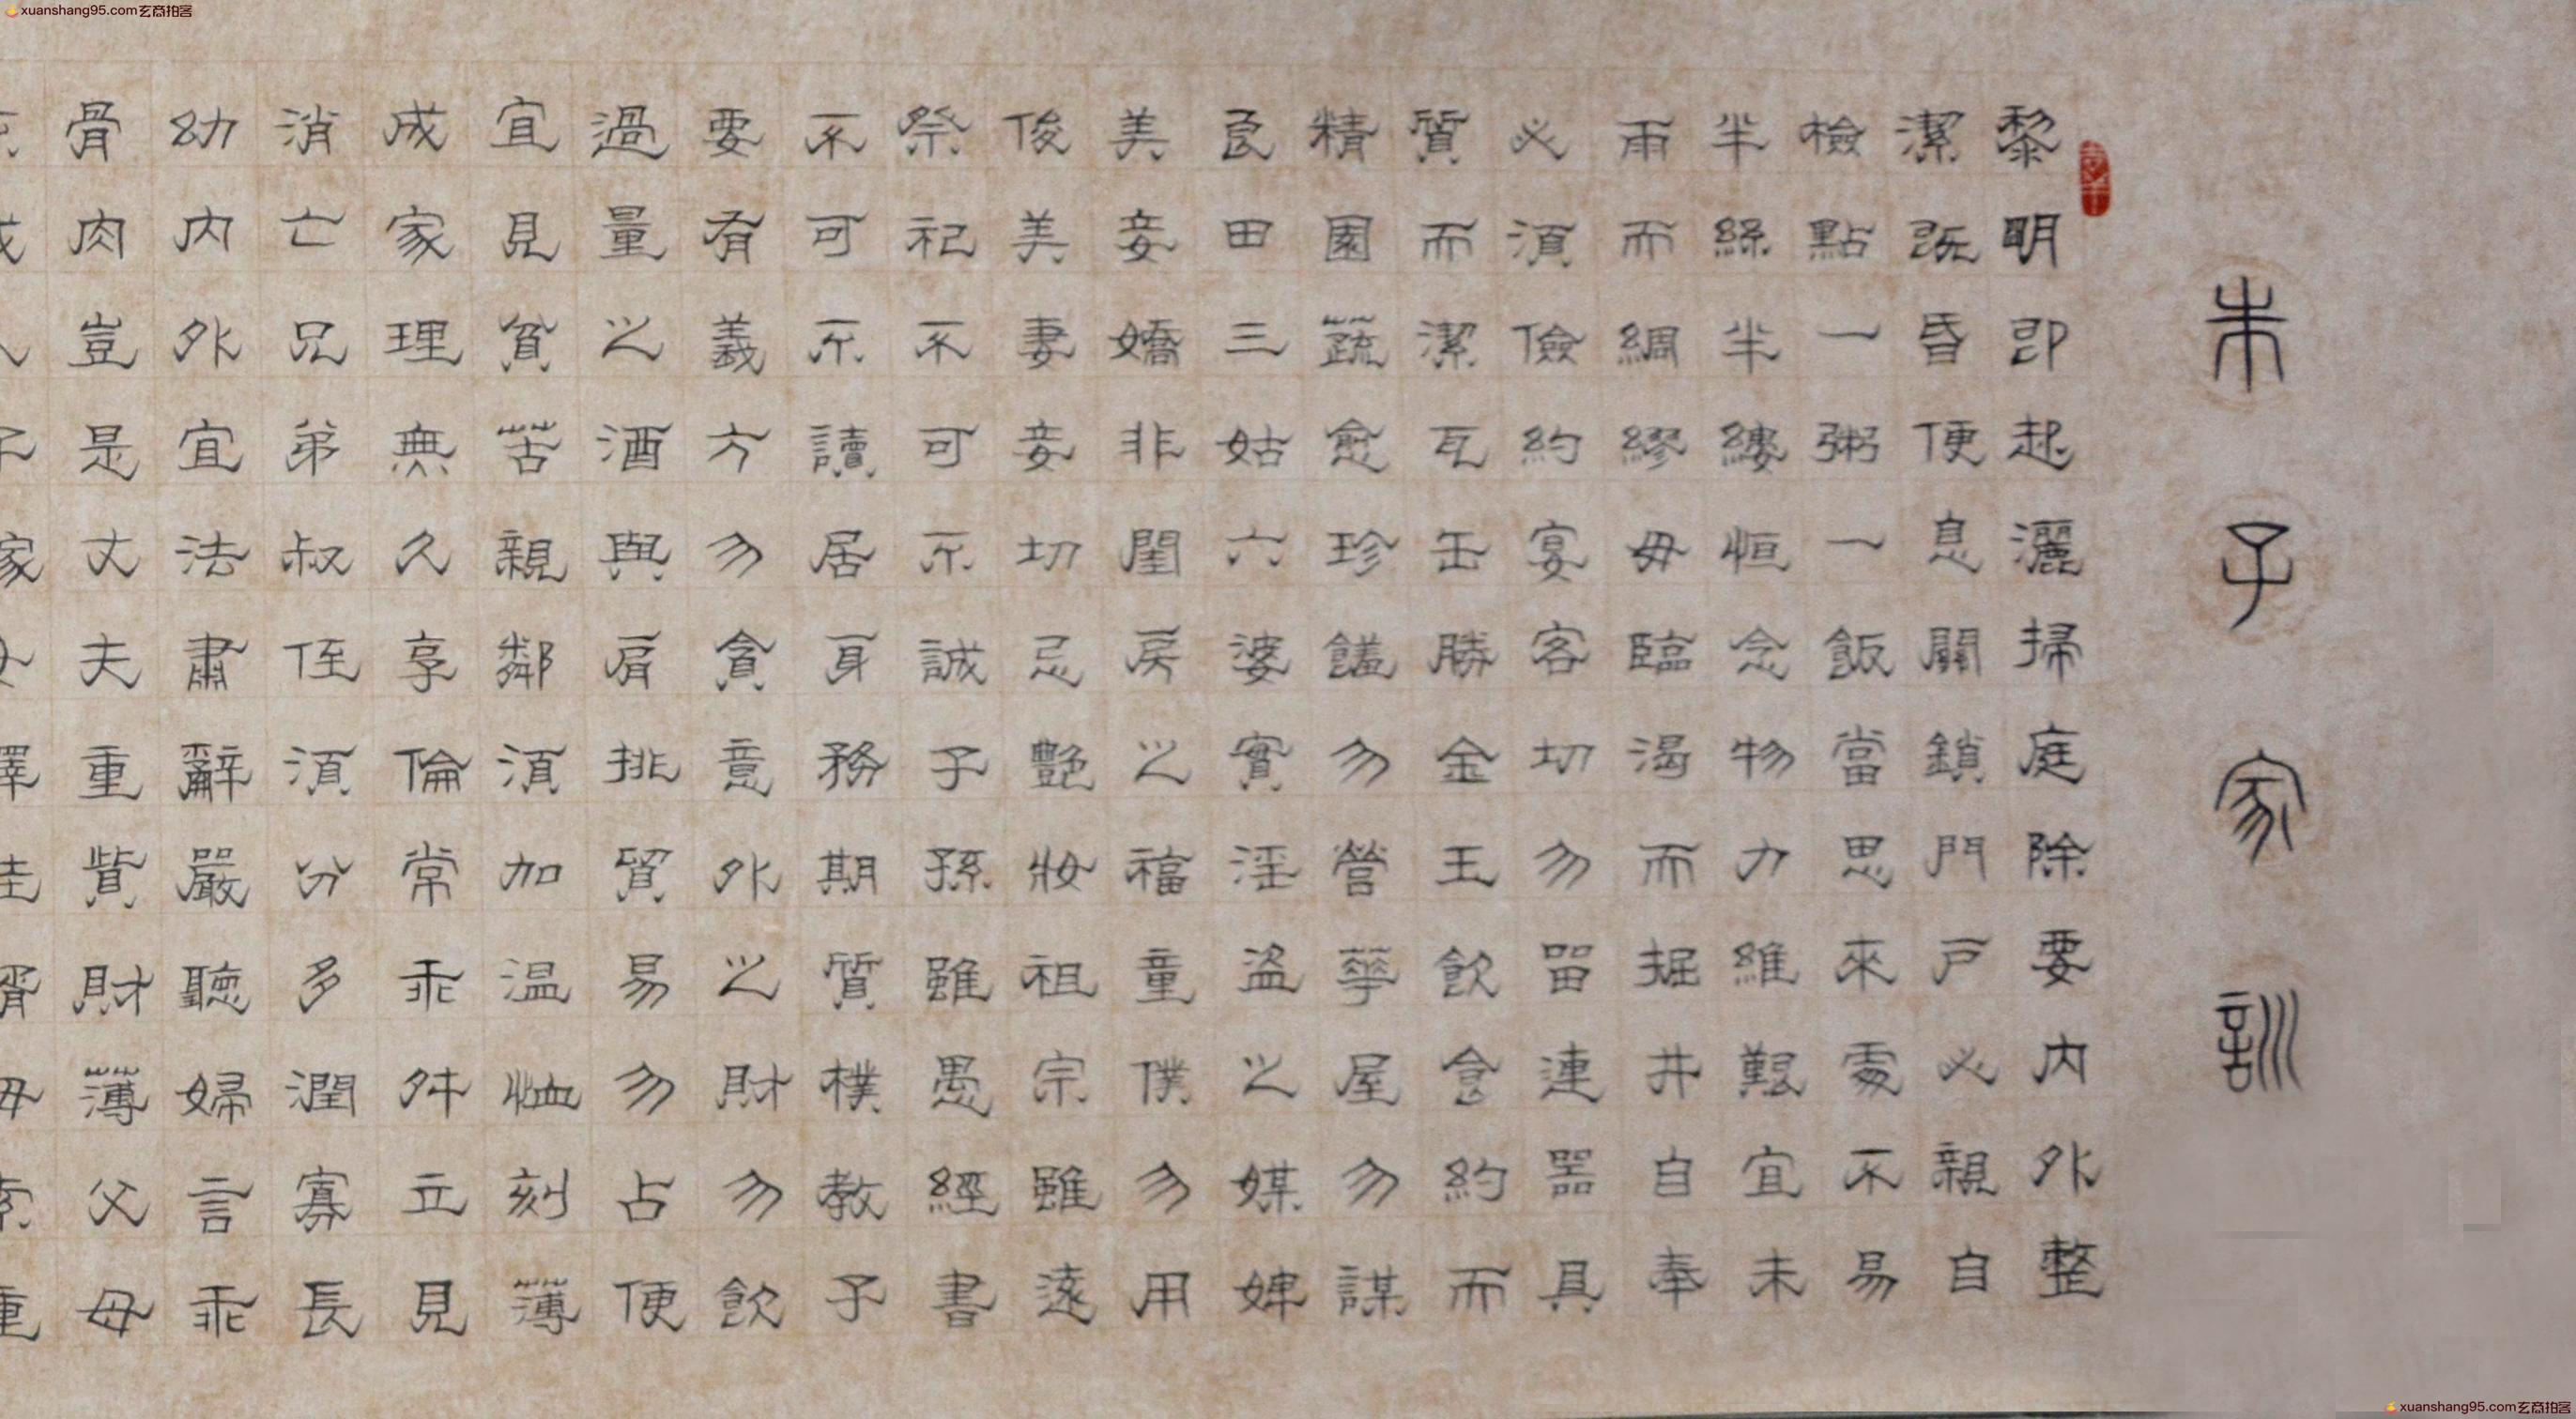 朱子家訓
黎明即起灑掃庭除要內外整
潔既昏便息關鎖門戶必親自
檢點一粥一飯當思來處不易
半絲半縷恒念物力維艱宜未
雨而綢繆毋臨渴而掘井自奉
必須儉約宴客切勿留連器具
質而潔瓦缶勝金玉飲食約而
精園蔬愈珍饈勿營華屋勿謀
良田三姑六婆實淫盜之媒婢
美妾嬌非閨房之福童僕勿用
俊美妻妾切忌艷妝祖宗雖遠
祭祀不可不誠子孫雖愚經書
不可不讀居身務期質樸教子
要有義方勿貪意外之財勿飲
過量之酒與肩挑貿易勿占便
宜見貧苦親鄰須加温恤刻薄
成家理無久享倫常乖舛立見
消亡兄弟叔侄須分多潤寡長
幼內外宜法肅辭嚴聽婦言乖
骨肉豈是丈夫重貲財薄父母
xuanshang95.com玄商拍客
xuanshang95.com玄商拍客